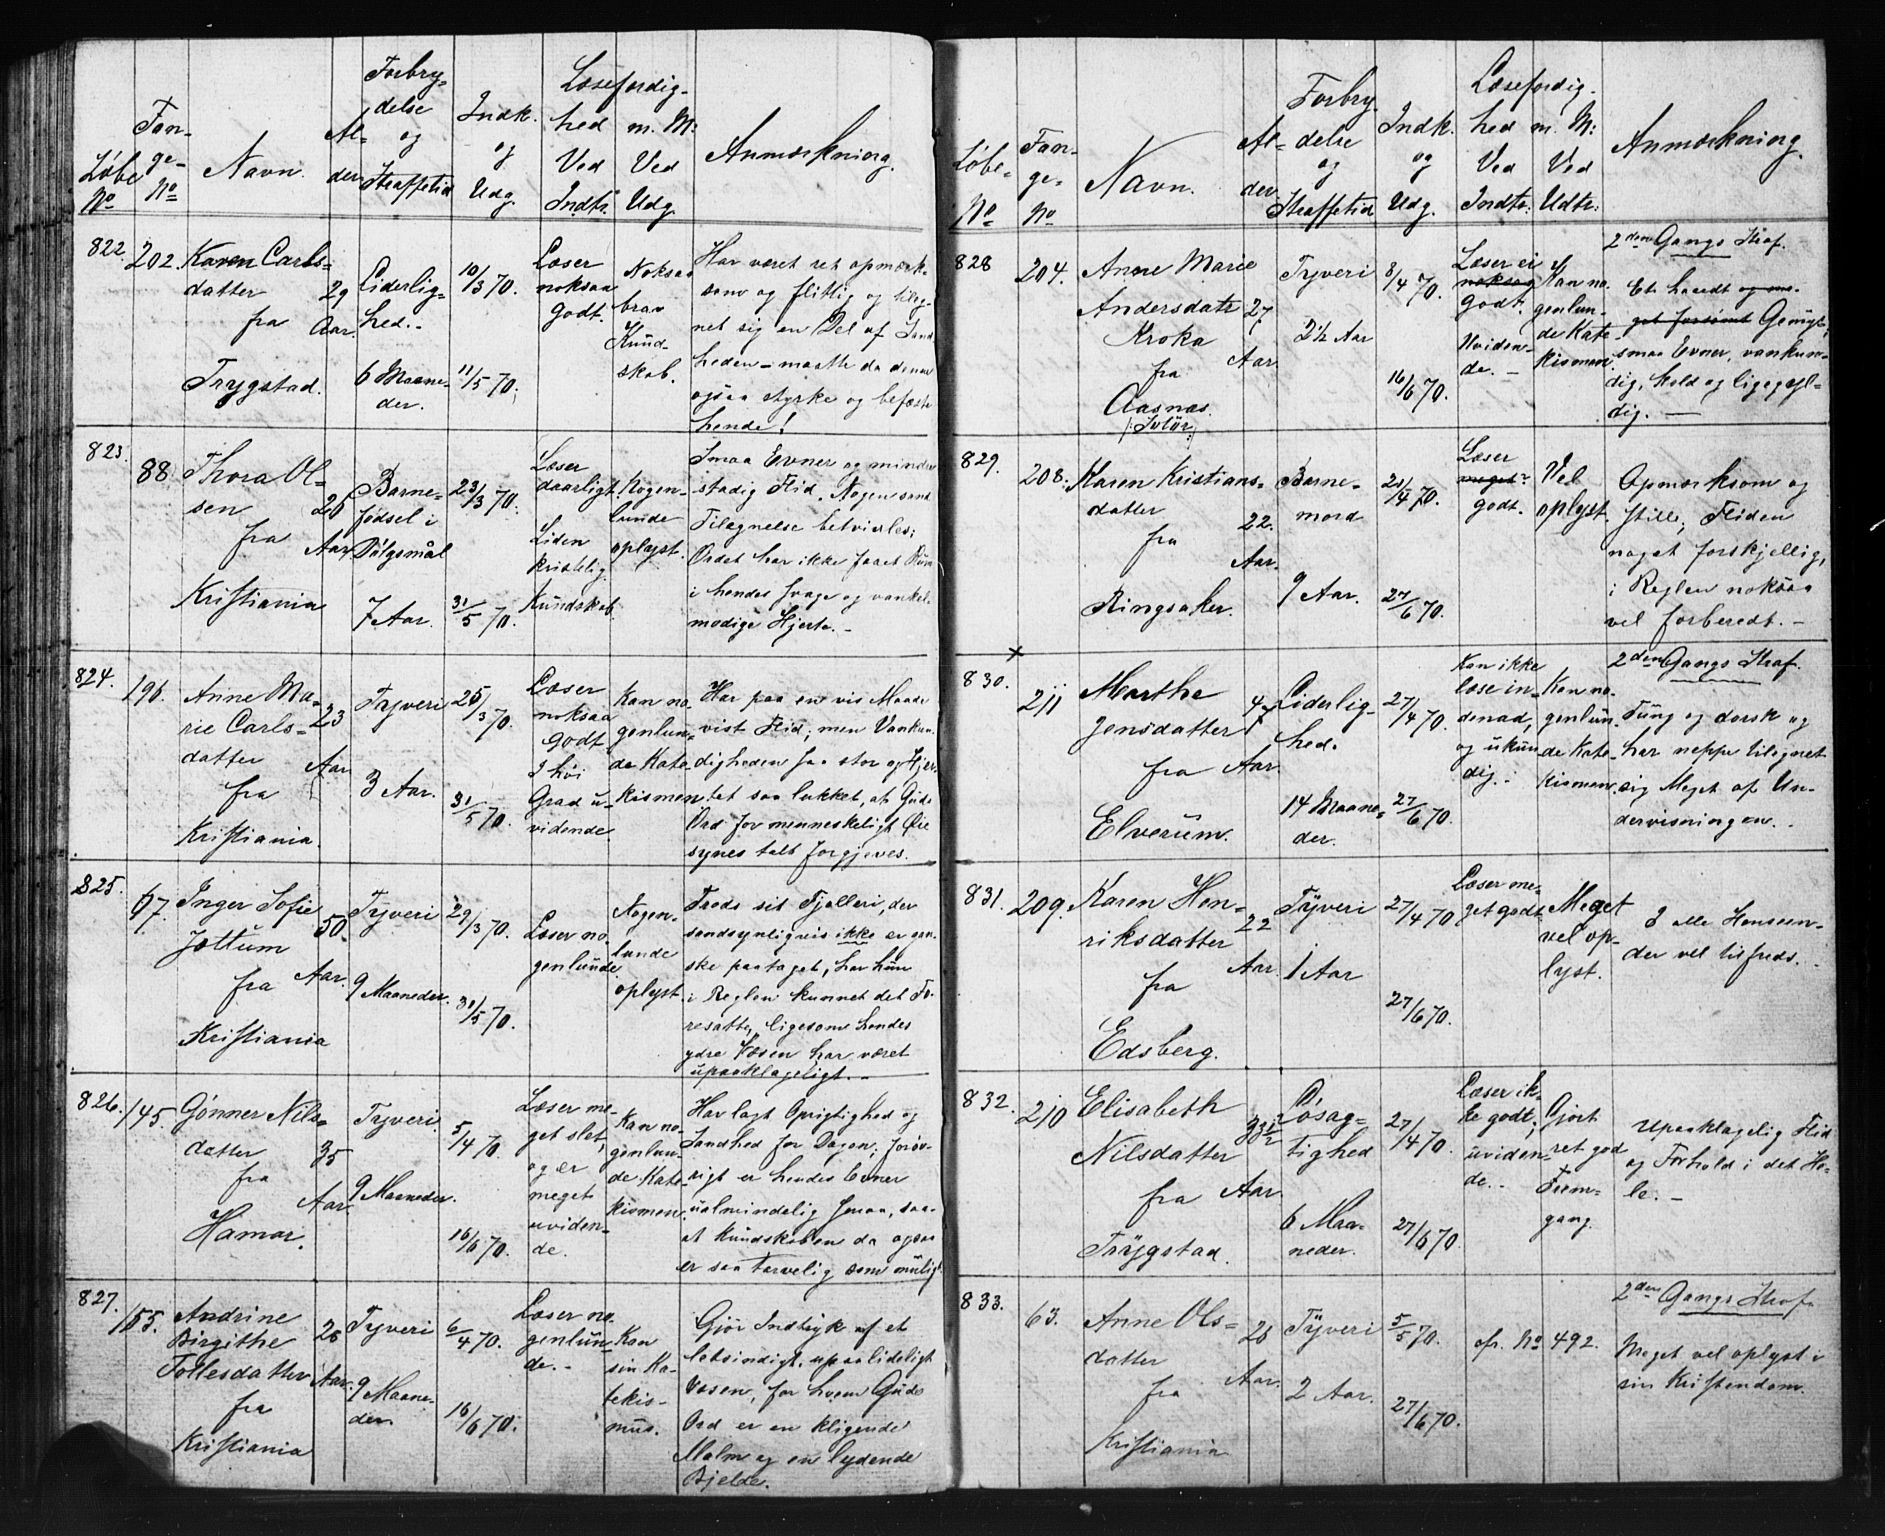 Løbe No
Fan-
ge-
No
Navn.
Al-
der
Forbry-
delse
og
Straffetid
Indk.
og
Udg.
Læsefærdig-
hed m. M:
Ved Ved
Indtr. Udg.
Anmærkning.
822.
202.
Karen Carls-
datter
fra
Trygstad.
29
Aar.
Liderlig-
hed.-
6 Maane-
der.
10/3 70.
11/5 70.
Læser
noksaa
godt.
Noksaa
brav
Kund-
skab.
Har været ret opmærk-
som og flittig og tileg-
net sig en Del af Sand-
heden - maatte da denne
ogsaa styrke og befæste
hende!
823.
88
Thora Ol-
sen
fra
Kristiania
26
Aar
Barne-
fødsel i
Dølgsmål
7 Aar.
23/3 70.
31/5 70.
Læser
daarligt.
Liden
kristelig
Kundskab.
Nogen-
lunde
oplyst.
Smaa Evner og mindre
stadig Flid. Nogen sand
Tilegnelse betvivles;
Ordet har ikke faaet Rum
i hendes svage og vankel-
modige Hjerte.-
824.
196.
Anne Ma-
rie Carls-
datter
fra
Kristiania.
23
Aar
Tyveri
3 Aar.
26/3 70.
31/5 70.
Læser
noksaa
godt
I høi
Grad u-
vidende.
Kan no-
genlun-
de Kate-
kismen
Har paa en vis Maade
vist Flid; men Vankun-
digheden saa stor og Hjer-
tet saa lukket, at Guds
Ord for menneskeligt Øie
synes talt forgjeves.
825.
67.
Inger Sofie
Jøttum
fra
Kristiania
50.
Aar.
Tyveri
9 Maaneder.
29/3 70.
31/5 70.
Læser no-
genlunde.
Nogen-
lunde
oplyst.
Trods sit Fjolleri, der
sandsynligvis ikke er gan-
ske paataget, har hun
i Reglen kunnet det Fo-
resatte, ligesom hendes
ydre Væsen har været
upaaklageligt.-
826.
145.
Gønner Nils-
datter
fra
Hamar.
35
Aar
Tyveri.
9 Maaneder.
5/4 70.
16/6 70.
Læser me-
get slet,
og er
meget
uviden-
de.
Kan no-
genlun-
de Kate-
kismen.
Har lagt Oprigtighed og
Sandhed for Dagen; forøv-
rigt er hendes Evner
ualmindelig smaa, saa-
at Kundskaben da ogsaa
er saa tarvelig som muligt
827.
155.
Andrine
Birgithe
Tollesdatter
fra
Kristiania
26
Aar.
Tyveri
9 Maane-
der.
6/4 70.
16/6 70.
Læser no-
genlun-
de.-
Kan
sin Ka-
tekis-
mus.
Gjør Indtryk af et
løbsindigt, upaalideligt
Væsen, for hvem Guds
Ord er en klingende
Malm og en lydende
Bjelde.
Løbe-
No
Fan-
ge-
No
Navn.
Al-
der
Forbry-
delse
og
Straffetid
Indk.
og
Udg.
Læsefærdig-
hed m. M:
Ved Ved
Indtr: Udtr:
Anmærkning.
828
204.
Anne Marie
Andersdatr
Kroka
fra
Aasnæs.
/: Solør :/
27
Aar.
Tyveri
2½ Aar
8/4 70.
16/6 70.
Læser ei
noksaa
godt.
Uviden-
de.-
Kan no-
genlun-
de Kate-
kismen
2den Gangs Straf.
Et haardt og me-
get forsømt Gemyt,
smaa Evner, vankun-
dig, kold og ligegyl-
dig.-
829.
208.
Karen Kristians-
datter
fra
Ringsaker.
22.
Aar.
Barne-
mord
9 Aar.
21/4 70.
27/6 70.
Læser
meget
godt.
Vel
oplyst.
Opmærksom og
stille; Fliden
noget forskjellig,
i Reglen noksaa
vel forberedt.-
×
830.
211
Marthe
Jensdatter
fra
Elverum.
47
Aar.
Liderlig-
hed.
14 Maane-
der.
27/4 70.
27/6 70.
Kan ikke
læse in-
denad,
og ukun-
dig.-
Kan no-
genlun-
de Kate-
kismen.
2den Gangs Straf.
Tung og dorsk og
har neppe tilegnet
sig Meget af Un-
dervisningen.
831.
209.
Karen Hen-
riksdatter
fra
Edsberg.
22
Aar.
Tyveri
1 Aar
27/4 70
27/6 70.
Læser me-
get godt
Meget
vel op-
lyst.
I alle Henseen-
der vel tilfreds.
832.
210
Elisabeth
Nilsdatter
fra
Trygstad.
33½
Aar.
Løsag-
tighed
6 Maa-
neder.
27/4 70.
27/6 70.
Læser ik-
ke godt;
uviden-
de.-
Gjort
ret god
Frem-
gang.
Upaaklagelig Flid
og Forhold i det He-
le.-
833.
63.
Anne Ols-
datter
fra
Kristiania
26
Aar.
Tyveri
2 Aar.
5/5 70.
27/6 70.
cfr. No 492.
2den Gangs Straf.
Meget vel oplyst i
sin Kristendom.